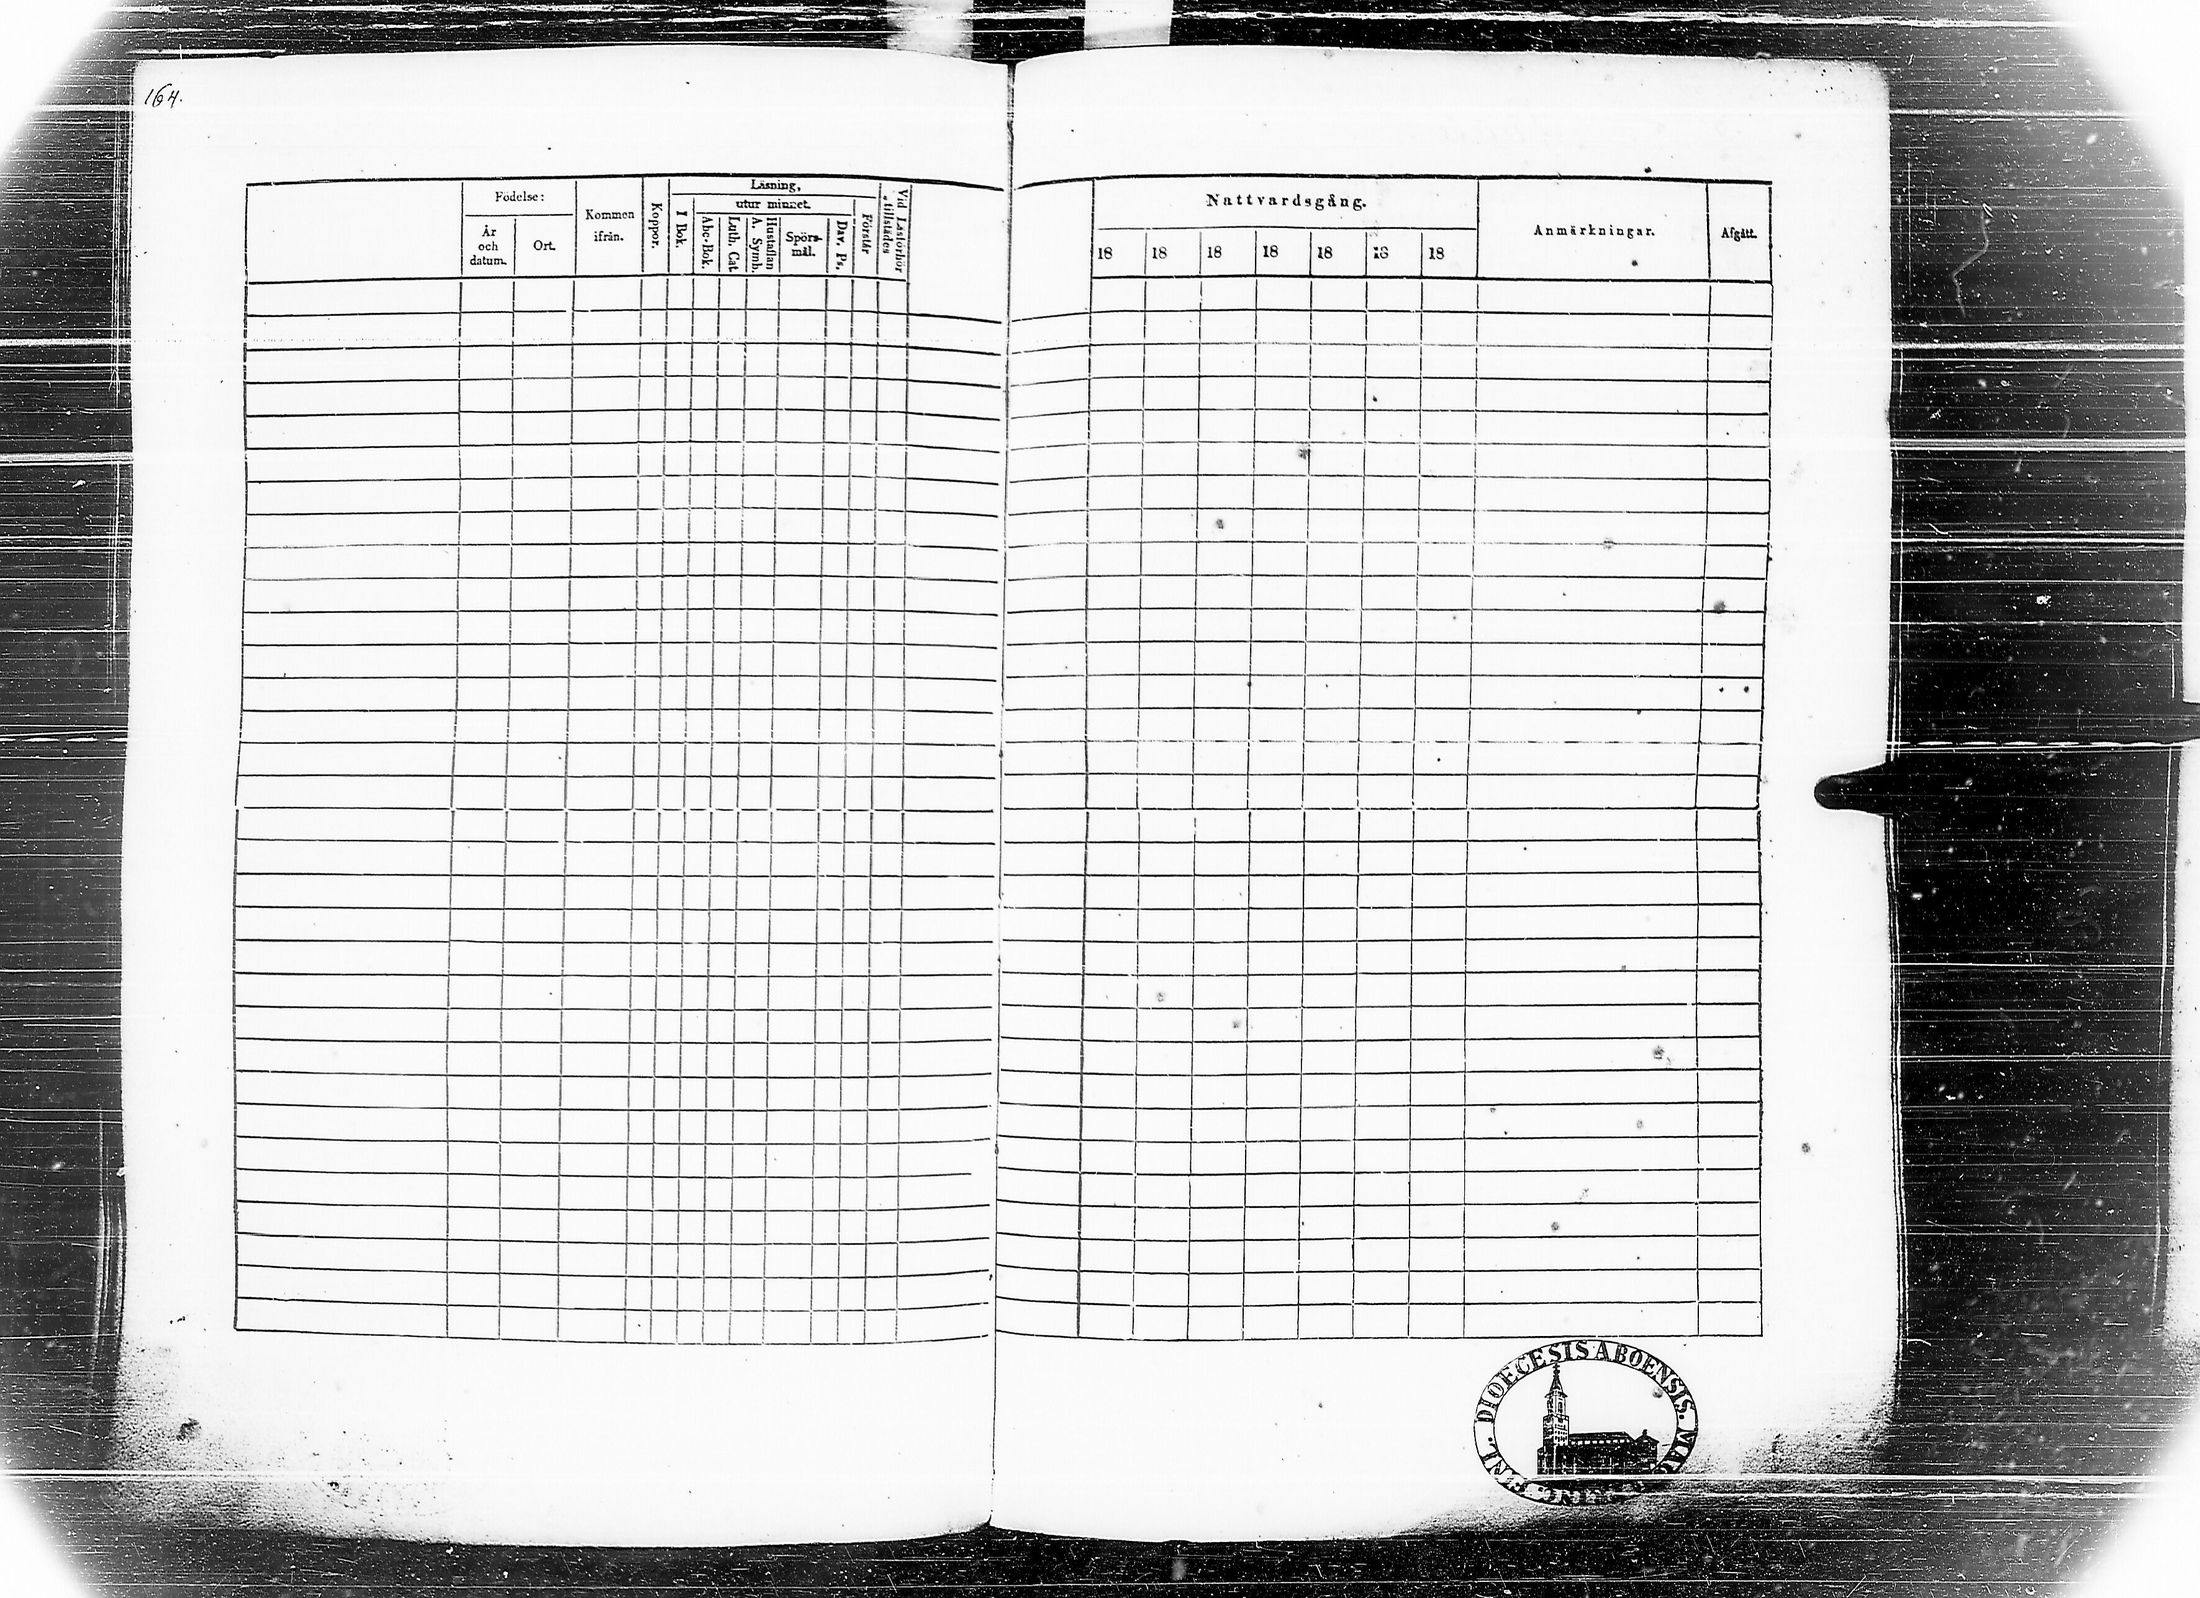 164.
Födelse:
År
och
datum.
Ort.
Kommen
ifrån.
Koppor.
Läsning,
utur minnet.
I Bok.
Abc-Bok.
Luth. Cat.
Hustaflan
A. Symb.
Spörs-
mål.
Dav. Ps.
Förstår
Vid Läsförhör
tillstädes
Nattvardsgång.
18 18 18 18 18 18 18
Anmärkningar.
Afgått.
DIOECESIS ABOENSIS.